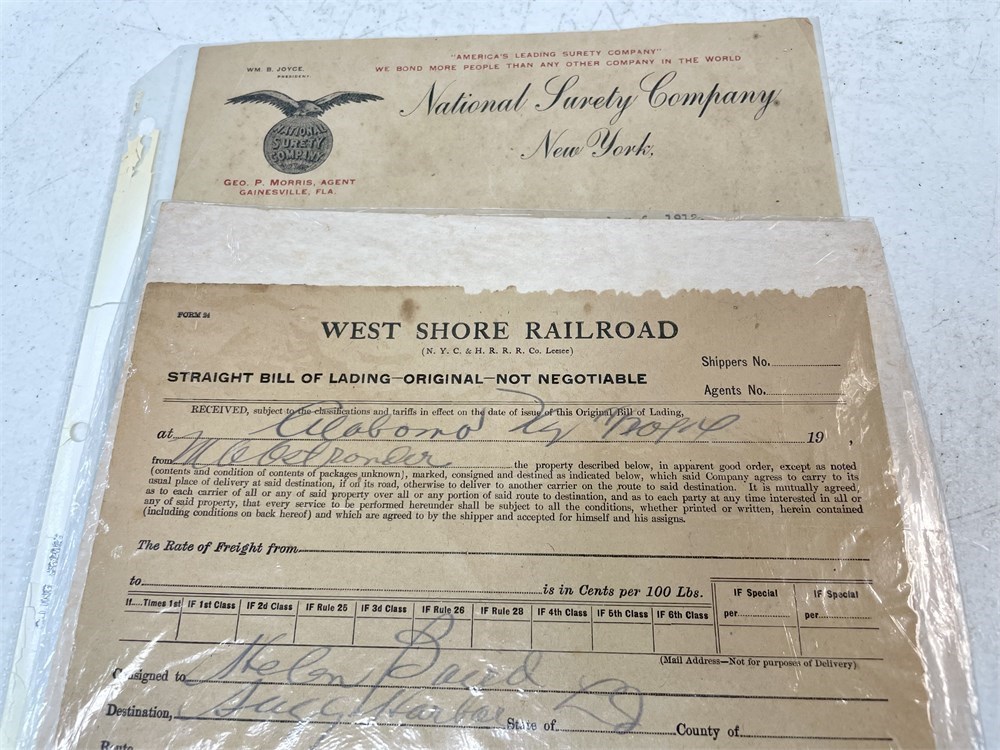 "AMERICA'S LEADING SURETY COMPANY"
WE BOND MORE PEOPLE THAN ANY OTHER COMPANY IN THE WORLD
WM. B. JOYCE,
PRESIDENT.
National Surety Company,
New York.
NATIONAL
SURETY
COMPANY
GEO. P. MORRIS, AGENT
GAINESVILLE, FLA.
1912
FORM 24
WEST SHORE RAILROAD
(N. Y. C. & H. R. R. R. Co. Lessee)
Shippers No.
STRAIGHT BILL OF LADING—ORIGINAL—NOT NEGOTIABLE
Agents No.
RECEIVED, subject to the classifications and tariffs in effect on the date of issue of this Original Bill of Lading,
at Alabama Ny 19 ,
from M O Ostrander the property described below, in apparent good order, except as noted
(contents and condition of contents of packages unknown), marked, consigned and destined as indicated below, which said Company agrees to carry to its
usual place of delivery at said destination, if on its road, otherwise to deliver to another carrier on the route to said destination. It is mutually agreed,
as to each carrier of all or any of said property over all or any portion of said route to destination, and as to each party at any time interested in all or
any of said property, that every service to be performed hereunder shall be subject to all the conditions, whether printed or written, herein contained
(including conditions on back hereof) and which are agreed to by the shipper and accepted for himself and his assigns.
The Rate of Freight from
to is in Cents per 100 Lbs.
If....Times 1st IF 1st Class IF 2d Class IF Rule 25 IF 3d Class IF Rule 26 IF Rule 28 IF 4th Class IF 5th Class IF 6th Class IF Special per IF Special per
(Mail Address—Not for purposes of Delivery)
Consigned to Helen Baird
Destination, Harbor State of County of
Route